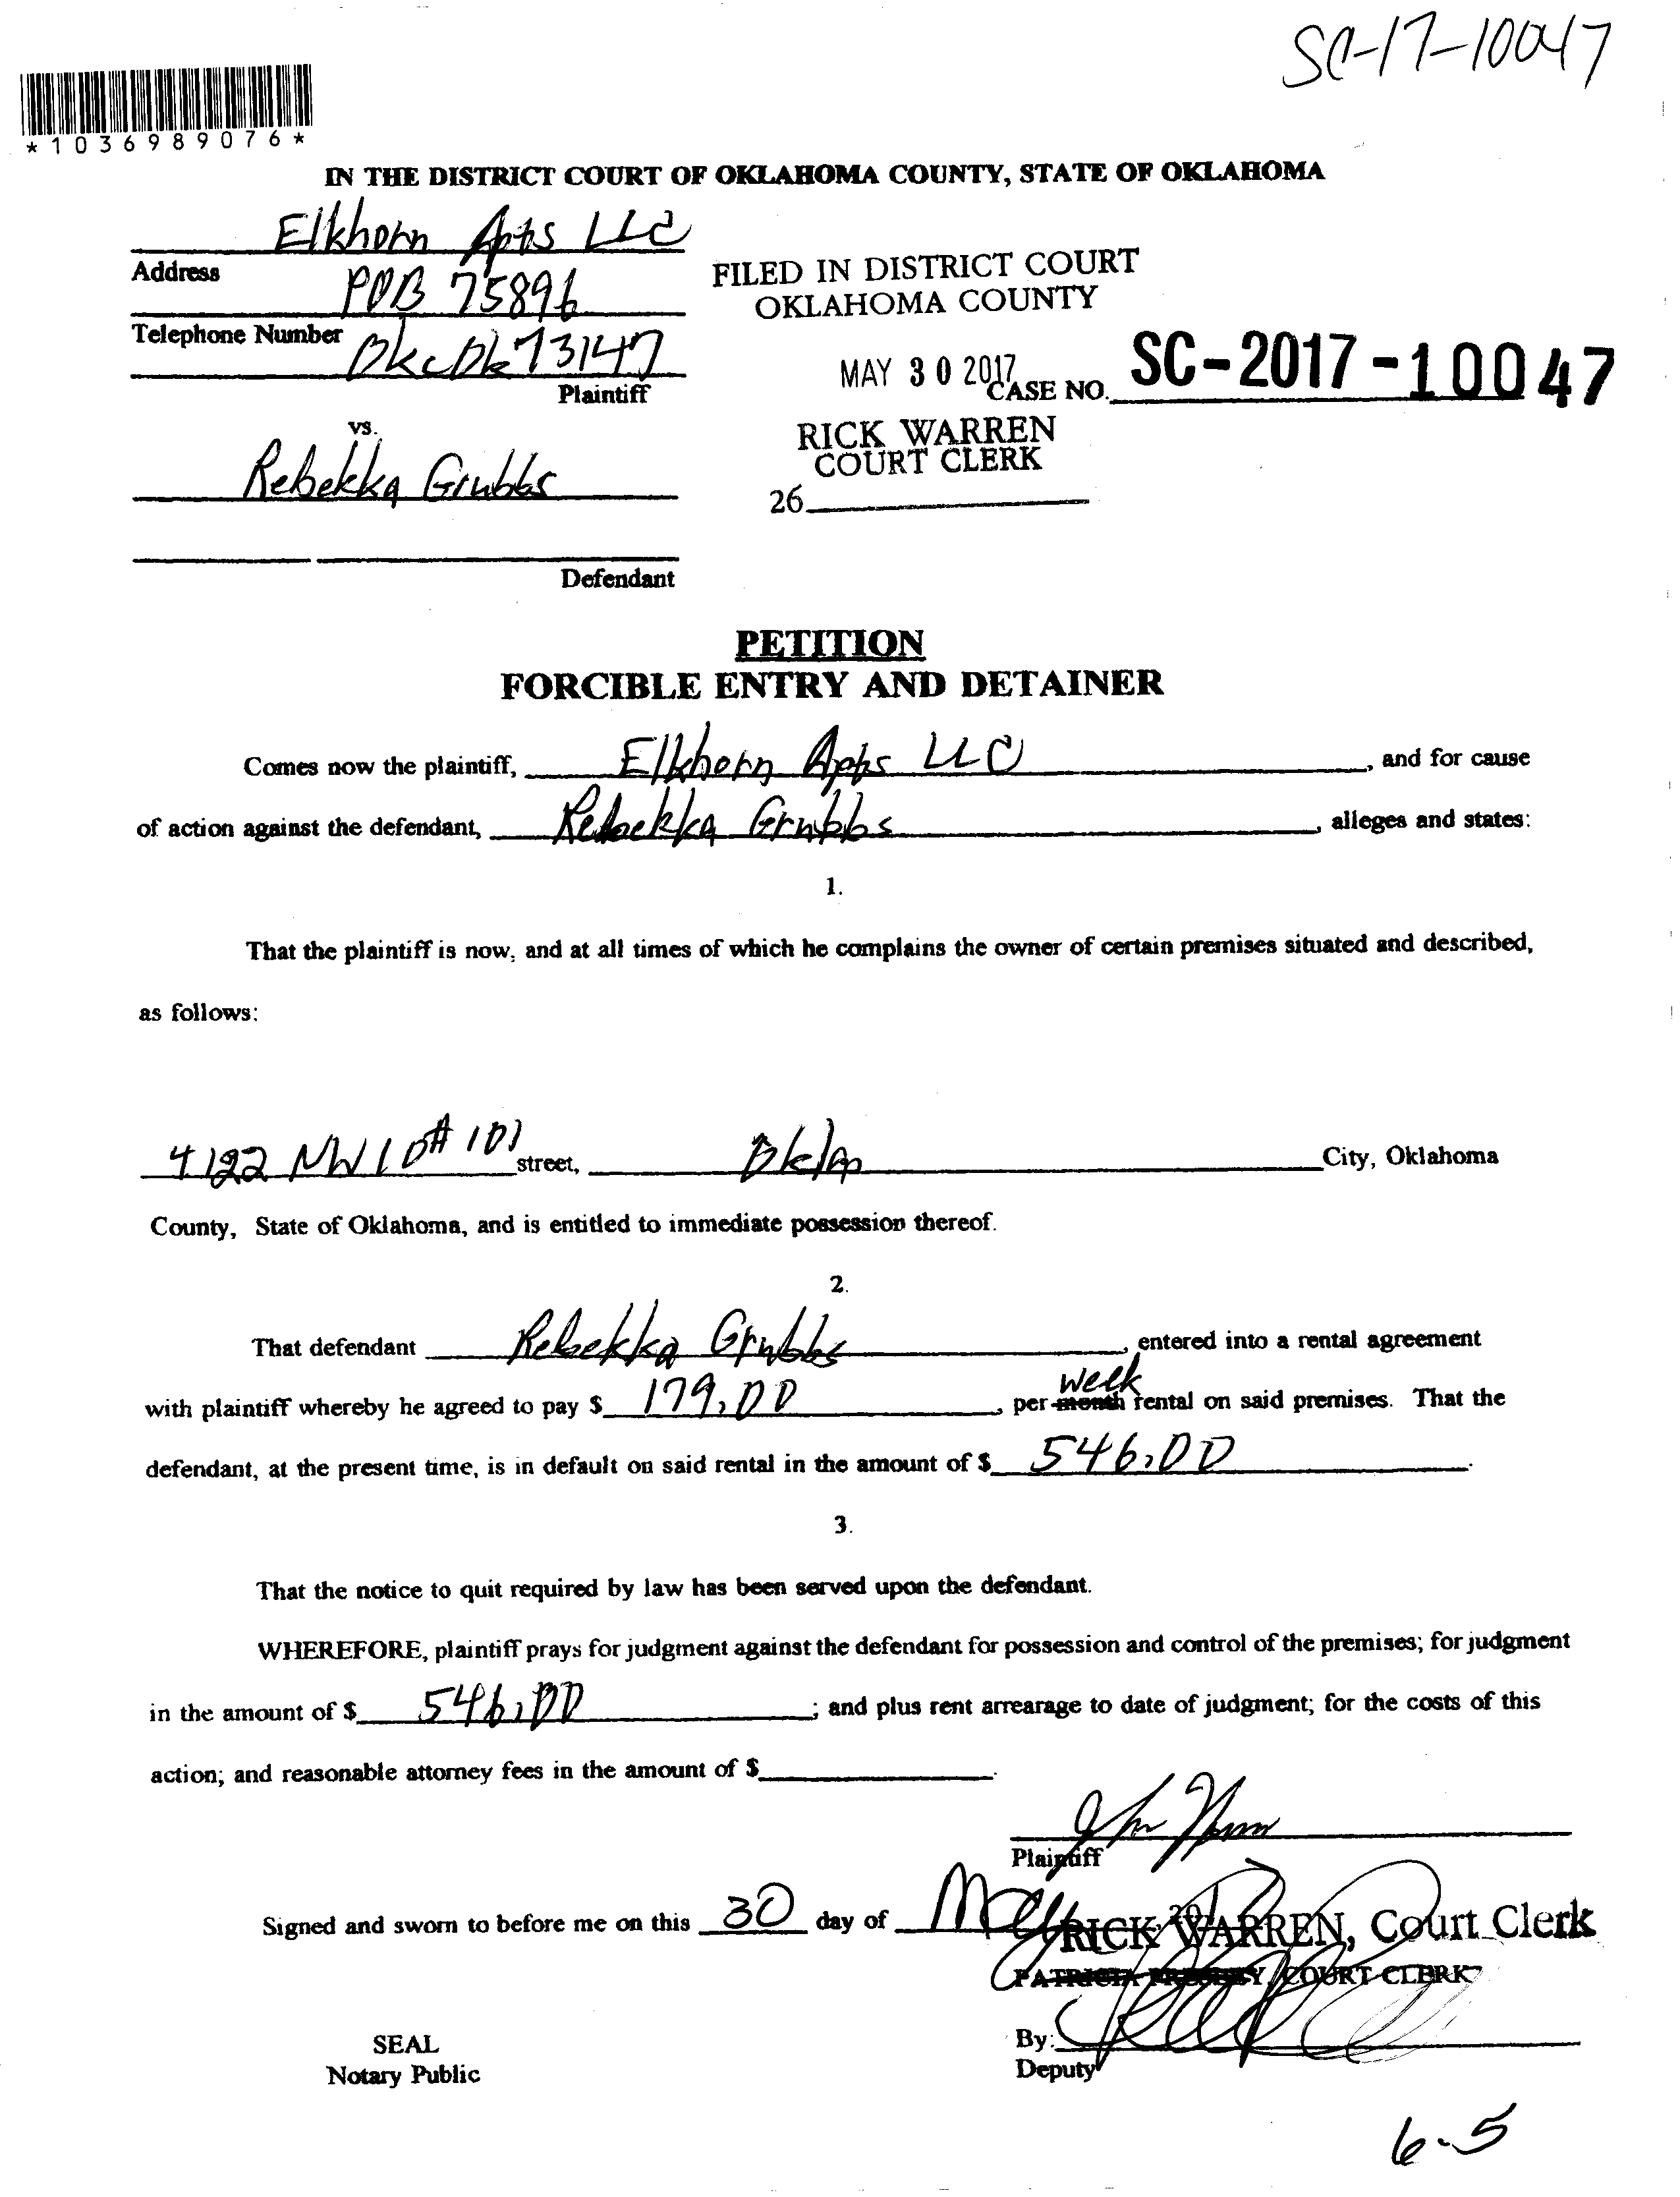 SC-17-10047
*1036989076*
IN THE DISTRICT COURT OF OKLAHOMA COUNTY, STATE OF OKLAHOMA
Elkhorn Apts LLC
Address POB 75896
Telephone Number Okc Ok 73147
Plaintiff
FILED IN DISTRICT COURT
OKLAHOMA COUNTY
MAY 30 2017
CASE NO. SC-2017-10047
RICK WARREN
COURT CLERK
26
vs.
Rebekka Grubbs
Defendant
PETITION
FORCIBLE ENTRY AND DETAINER
Comes now the plaintiff, Elkhorn Apts LLC, and for cause
of action against the defendant, Rebekka Grubbs, alleges and states:
1.
That the plaintiff is now, and at all times of which he complains the owner of certain premises situated and described,
as follows:
4122 NW 10 # 101 street, Okla City, Oklahoma
County, State of Oklahoma, and is entitled to immediate possession thereof.
2.
That defendant Rebekka Grubbs, entered into a rental agreement
with plaintiff whereby he agreed to pay $ 179.00, per month week rental on said premises. That the
defendant, at the present time, is in default on said rental in the amount of $ 546.00.
3.
That the notice to quit required by law has been served upon the defendant.
WHEREFORE, plaintiff prays for judgment against the defendant for possession and control of the premises; for judgment
in the amount of $ 546.00; and plus rent arrearage to date of judgment; for the costs of this
action; and reasonable attorney fees in the amount of $.
Plaintiff
Signed and sworn to before me on this 30 day of May
RICK WARREN, Court Clerk
COURT CLERK
SEAL
Notary Public
By:
Deputy
6-5